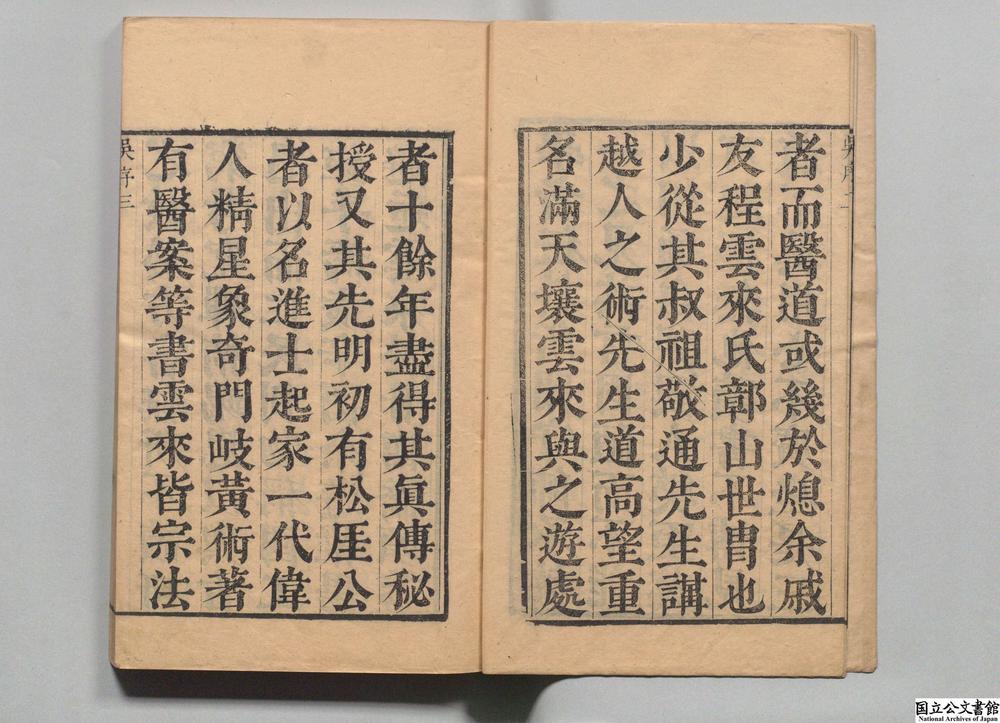 者而醫道或幾於熄余戚
友程雲來氏鄣山世冑也
少從其叔祖敬通先生講
越人之術先生道高望重
名滿天壤雲來與之遊處
者十餘年盡得其眞傳秘
授又其先明初有松厓公
者以名進士起家一代偉
人精星象奇門岐黃術著
有醫案等書雲來皆宗法
吳序三
国立公文書館
National Archives of Japan